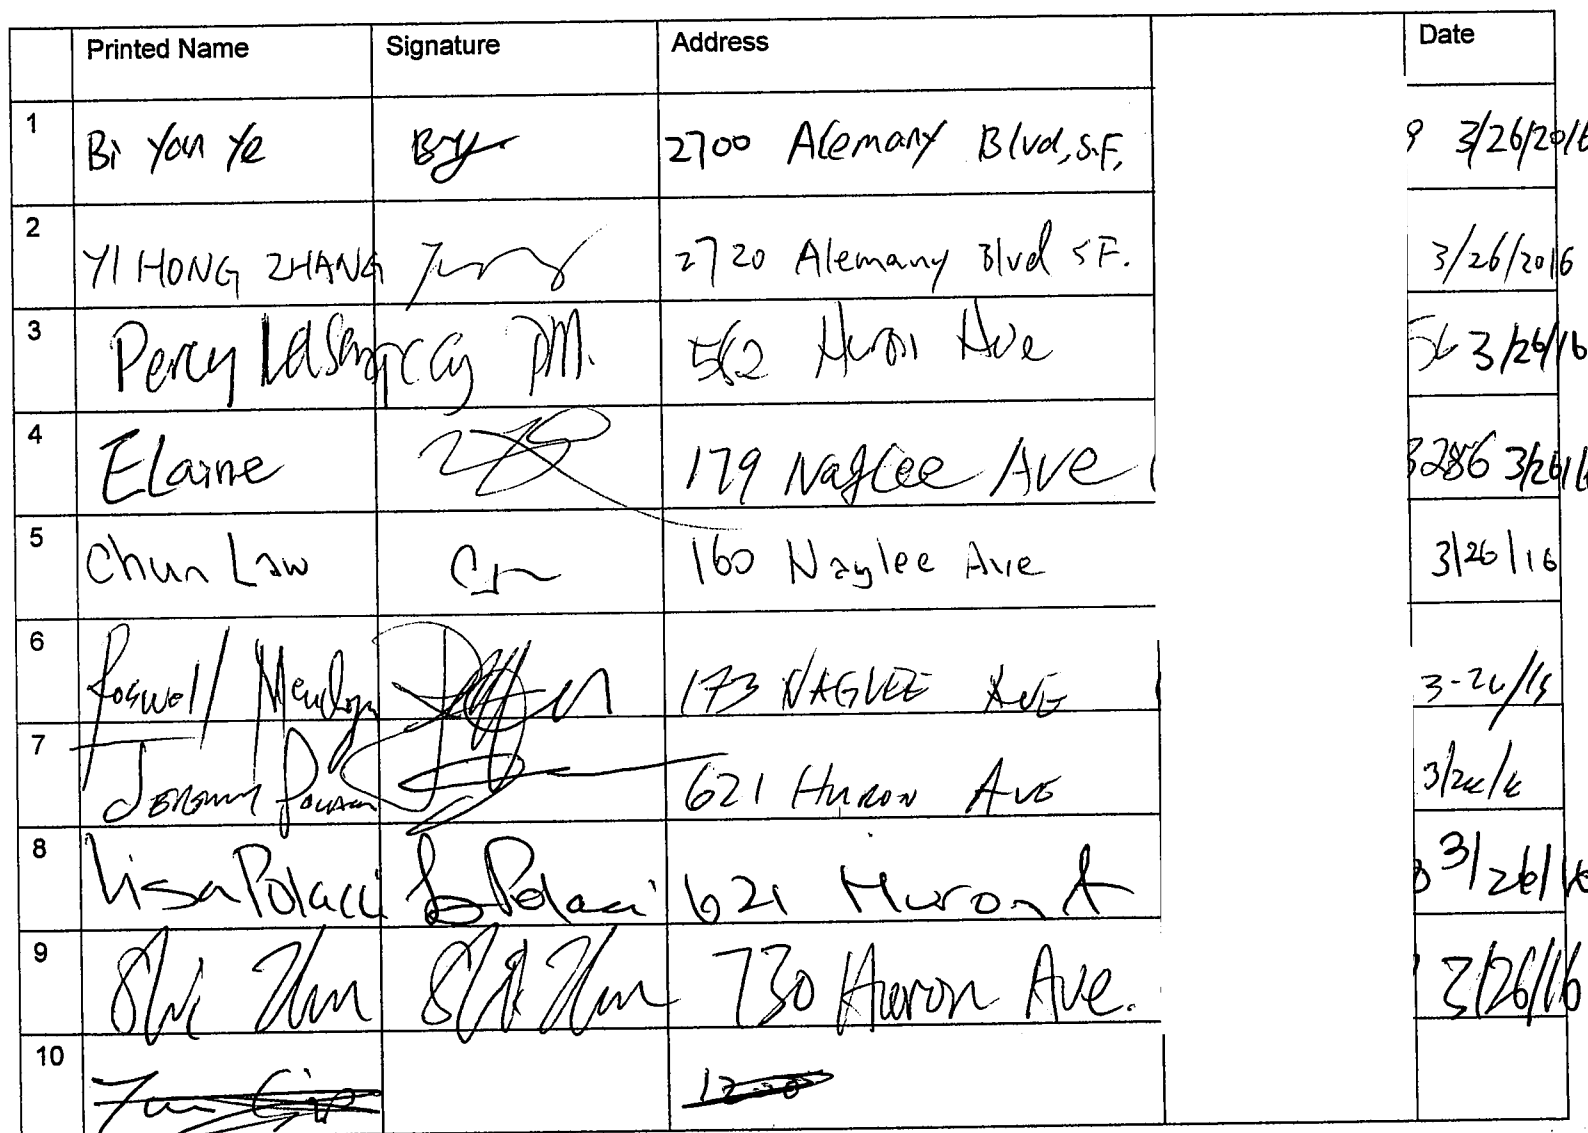 Printed Name Signature Address Date
1 Bi Yan Ye 2700 Alemany Blvd, S.F, 9 3/26/2016
2 YI HONG ZHANG 2720 Alemany Blvd S F. 3/26/2016
3 Percy PM. 562 Huron Ave 56 3/26/16
4 ELaine 179 NagLee AVE 3286 3/26/16
5 Chun Law 160 Naglee Ave 3/26/16
6 Roswell 173 NAGLEE AVE
7 JEREMY 621 HURON AVE
8 Lisa Polacci Polacci 621 Huron A 3/26/16
9 730 Huron Ave. 3/26/16
10